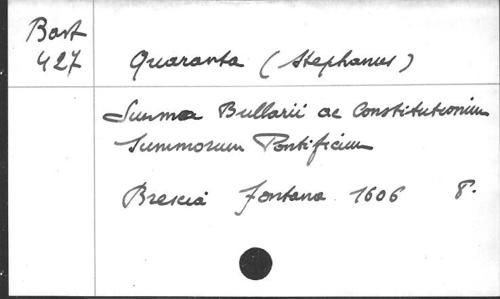 Bart
427
Quaranta (Stephanus)
Summa Bullarii ac Constitutionum
Summorum Pontificum
Brescia Fontana 1606 8.